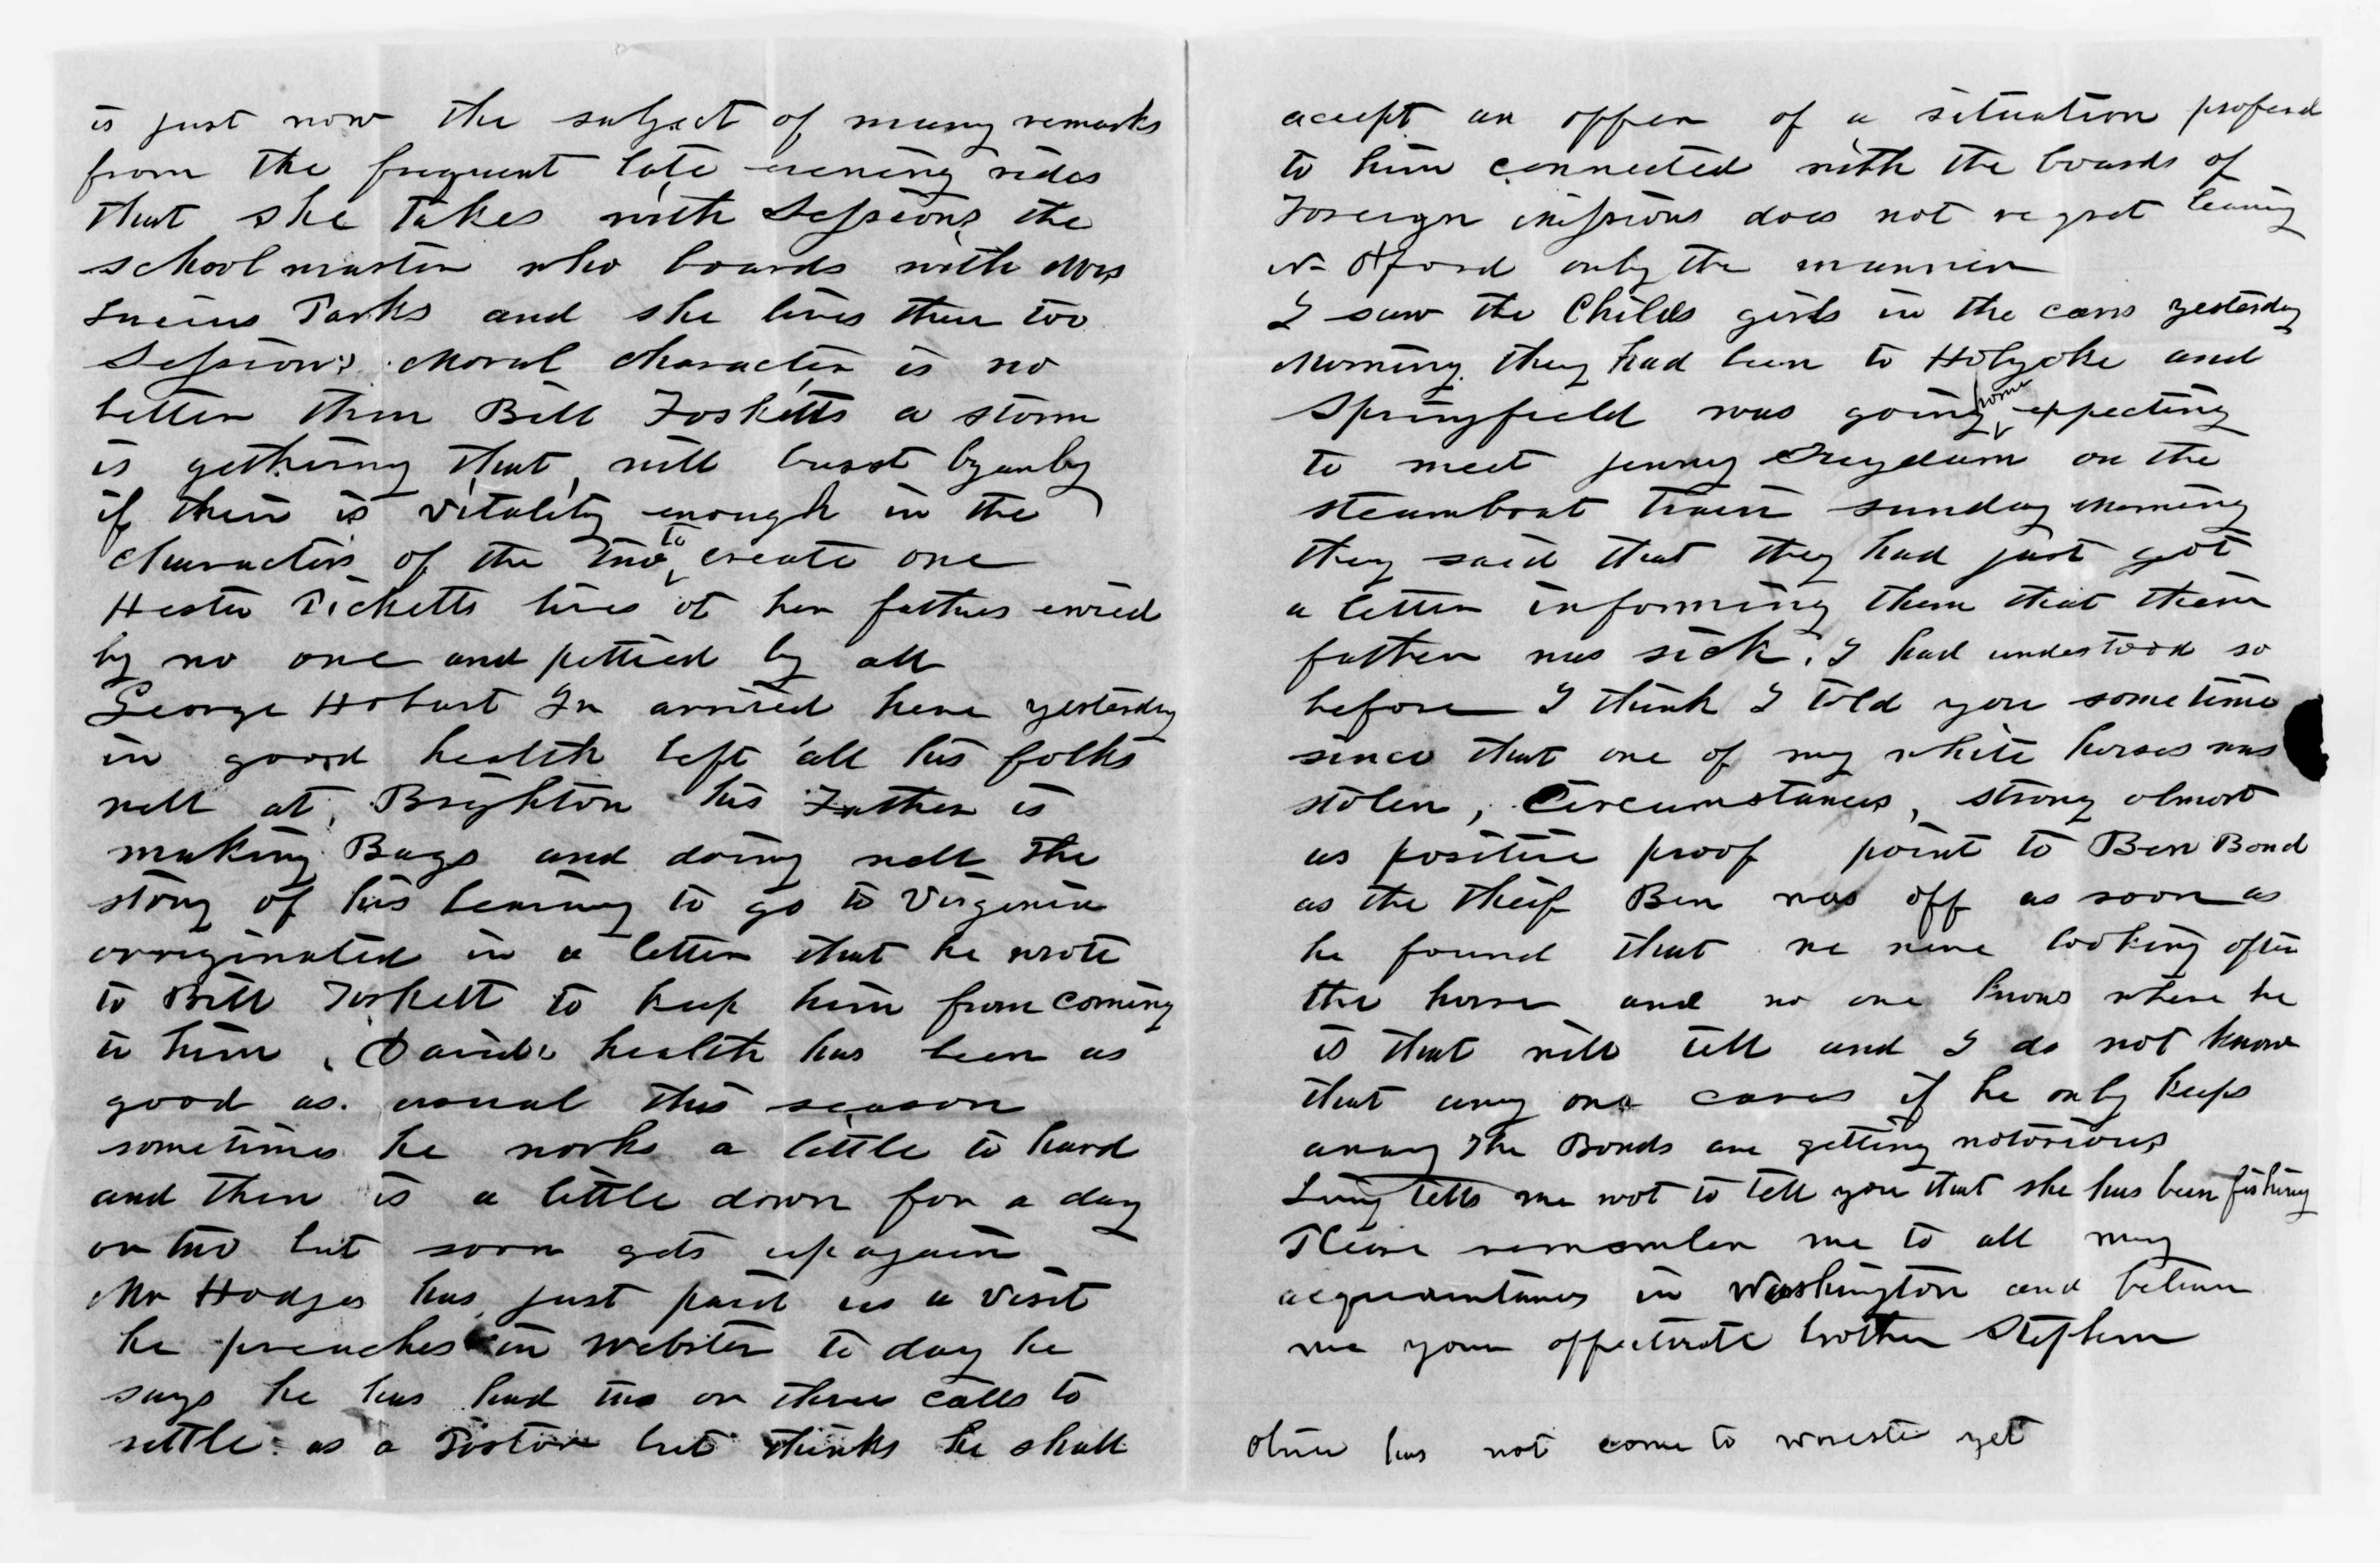 is just now the subject of many remarks
from the frequent late evening rides
that she takes with Sessions the
school master who boards with Mrs
Lucius Parks and she lives there too
Sessions Moral character is no
better than Bill Fosketts a storm
is gethering that will burst byanby
if their is vitality enough in the
characters of the two to create one
Hester Ricketts lives at her fathers envied
by no one and pettied by all
George Hobart Jr arrived here yesterday
in good health left all his folks
well at Brighton his Father is
making Bags and doing well the
story of his leaving to go to Virginia
orriginated in a letter that he wrote
to Bill Foskett to keep him from coming
to him, Davids health has been as
good as usual this season
sometimes he works a little to hard
and then is a little down for a day
or two but soon gets up again
Mr Hodges has just paid us a visit
he preaches in Webster to day he
says he has had two or three calls to
settle as a Pastor but thinks he shall
accept an offer of a situation proferd
to him connected with the boards of
Foreign missions does not regret leaving
N- Oxford only the manner
I saw the Childs girls in the cars yesterday
Morning they had been to Holyoke and
Springfield was going home expecting
to meet jenny on the
steamboat train sunday morning
they said that they had just got
a letter informing them that their
father was sick. I had understood so
before I think I told you sometime
since that one of my white horses was
stolen, Circumstances, strong almost
as positive proof point to Ben Bond
as the theif Ben was off as soon as
he found that we were looking after
the horse and no one knows where he
is that will tell and I do not know
that any one cares if he only keeps
away The Bonds are getting notorious
Livy tells me not to tell you that she has been fishing
Please remember me to all my
acquaintances in Washington and believe
me your affectinate brother Stephen
Olive has not come to worester yet